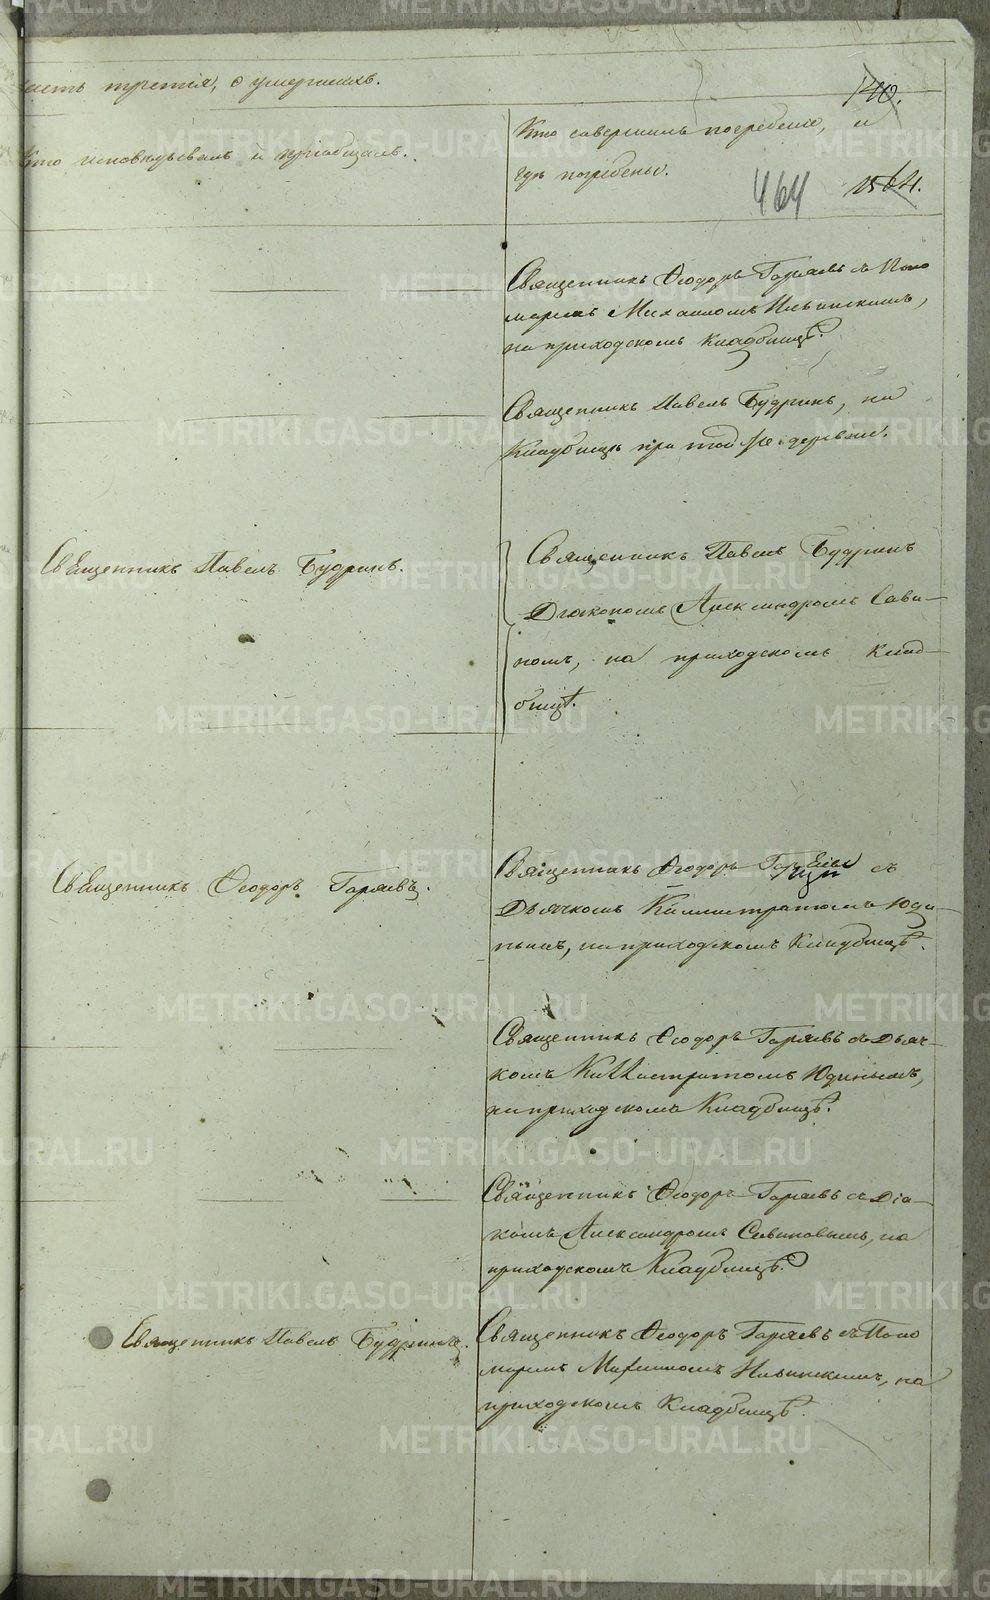 METRIKI.GASO-URAL.RU
часть третія, о умершихъ.
140.
Кто исповѣдывалъ и пріобщалъ.
Кто совершилъ погребеніе, и
гдѣ погребены.
464
1564.
Священникъ Ѳеодоръ Горяевъ съ Поно
маремъ Михаиломъ Ильинскимъ,
на приходскомъ Кладбищѣ.
Священникъ Павелъ Будринъ, на
Кладбищѣ при той же деревни.
Священникъ Павелъ Будринъ.
Священникъ Павелъ Будринъ
Діакономъ Александромъ Сави-
номъ, на приходскомъ Клад-
бищѣ.
Священникъ Ѳеодоръ Горяевъ.
Священникъ Ѳеодоръ съ
Дьячкомъ Каллистратомъ Юди-
нымъ, на приходскомъ Кладбищѣ.
Священникъ Ѳеодоръ Горяевъ съ Дьяч-
комъ Каллистратомъ Юдинымъ,
на приходскомъ Кладбищѣ.
Священникъ Ѳеодоръ Горяевъ съ Діа-
комъ Александромъ Савиновымъ, на
приходскомъ Кладбищѣ.
Священникъ Павелъ Будринъ.
Священникъ Ѳеодоръ Горяевъ съ Поно
маремъ Михаиломъ Ильинскимъ, на
приходскомъ Кладбищѣ.